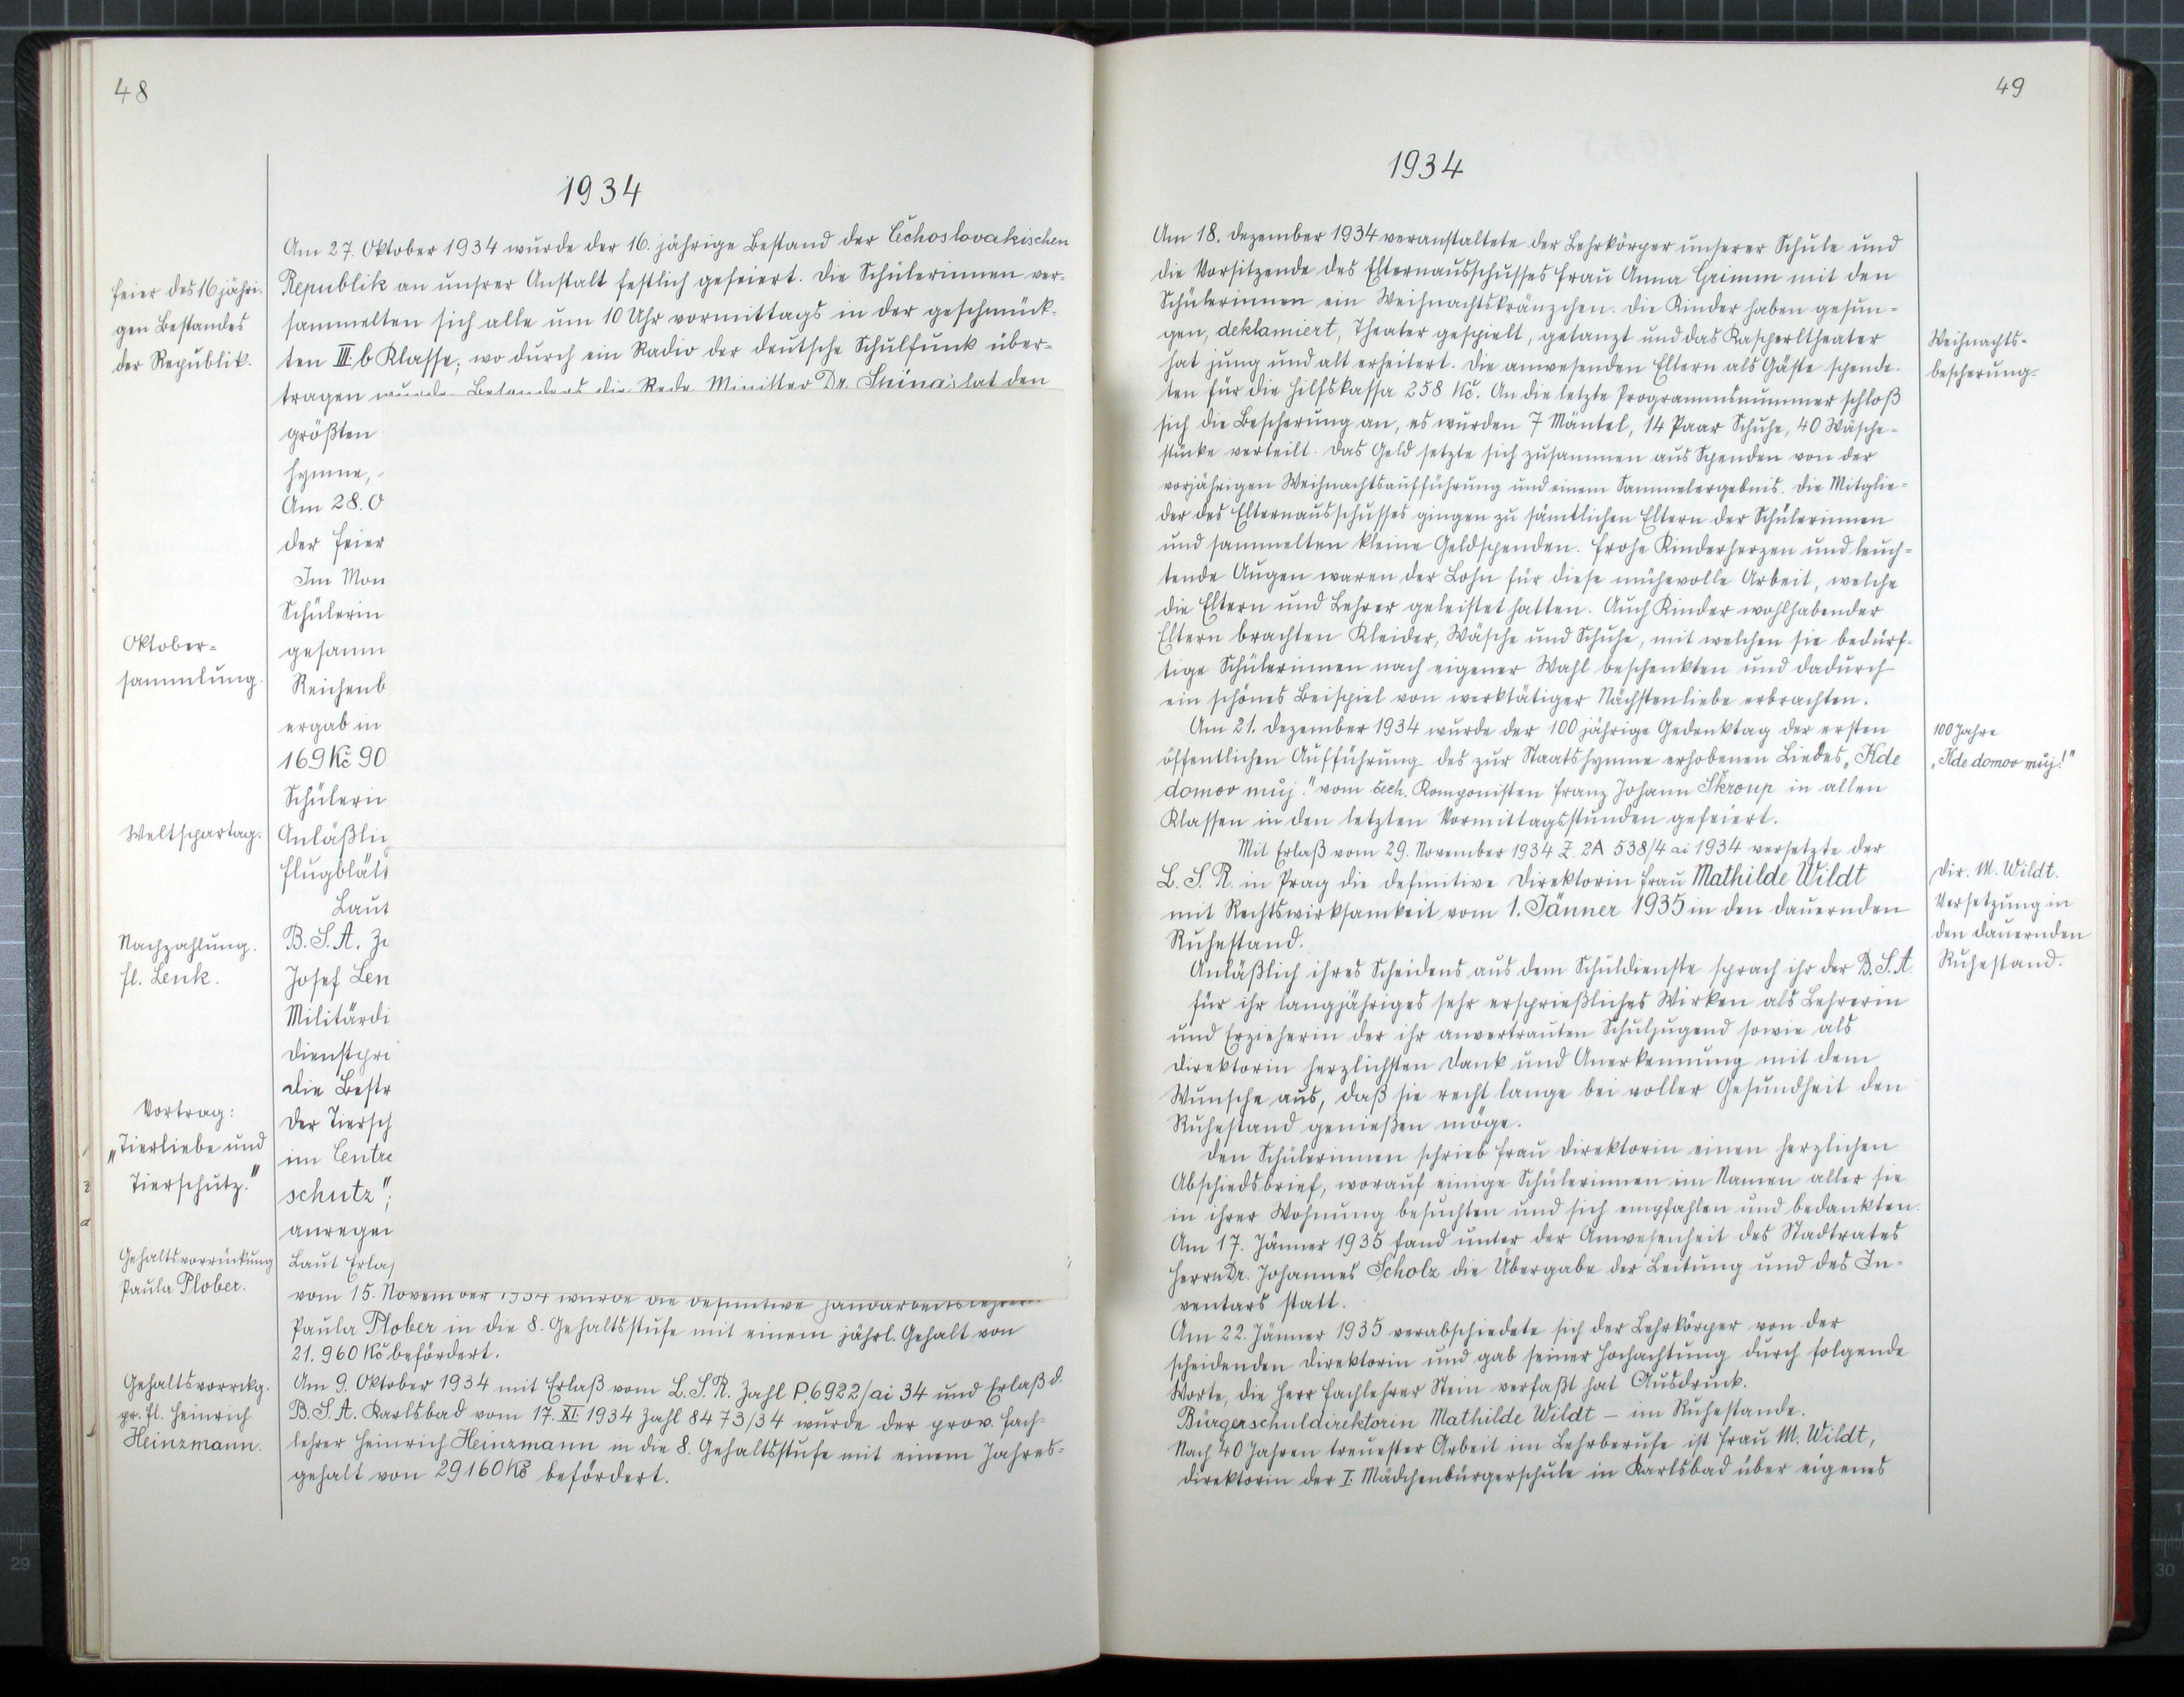 48
1934
Feier des 16 jähri-
gen Bestandes
der Republik.
Am 27. Oktober 1934 wurde der 16. jährige Bestand der Čechoslovakischen
Republik an unsrer Anstalt festlich gefeiert. Die Schülerinnen ver-
sammelten sich alle um 10 Uhr vormittags in der geschmück-
ten III. b Klasse, wo durch ein Radio der deutsche Schulfunk über-
tragen wurde. Besonders die Rede Minister Dr. Spina's hat den
größten
Hymne,
Am 28. O
der Feier
Im Mon
Schülerin
Oktober-
sammlung.
gesamm
Reichenb
ergab in
169 Kč 90
Schülerin
Weltspartag.
Anläßlic
Flugblätt
Laut
Nachzahlung.
Fl. Lenk.
B. S. A. Z
Josef Len
Militärdi
Dienstpr
Die Bestr
Vortrag:
„Tierliebe und
Tierschutz."
Der Tiersch
im Centr
schutz";
anregen
Gehaltsvorrückung
Paula Plober.
Laut Erlaß
vom 15. November 1934 wurde die definitive Handarbeitslehrerin
Paula Plober in die 8. Gehaltsstufe mit einem jährl. Gehalt von
21.960 Kč befördert.
Gehaltsvorrckg.
pr. Fl. Heinrich
Heinzmann.
Am 9. Oktober 1934 mit Erlaß vom L. S. R. Zahl P. 6922/ai 34 und Erlaß d.
B. S. A. Karlsbad vom 17. XI. 1934 Zahl 8473/34 wurde der prov. Fach-
lehrer Heinrich Heinzmann in die 8. Gehaltsstufe mit einem Jahres-
gehalt von 29160 Kč befördert.
49
1934
Am 18. Dezember 1934 veranstaltete der Lehrkörper unserer Schule und
die Vorsitzende des Elternausschusses Frau Anna Grimm mit den
Schülerinnen ein Weihnachtskränzchen. Die Kinder haben gesun-
gen, deklamiert, Theater gespielt, getanzt und das Kasperltheater
hat jung und alt erheitert. Die anwesenden Eltern als Gäste spende-
ten für die Hilfskassa 258 Kč. An die letzte Programmsnummer schloß
sich die Bescherung an, es wurden 7 Mäntel, 14 Paar Schuhe, 40 Wäsche-
stücke verteilt. Das Geld setzte sich zusammen aus Spenden von der
vorjährigen Weihnachtsaufführung und einem Sammelergebnis. Die Mitglie-
der des Elternausschusses gingen zu sämtlichen Eltern der Schülerinnen
und sammelten kleine Geldspenden. Frohe Kinderherzen und leuch-
tende Augen waren der Lohn für diese mühevolle Arbeit, welche
die Eltern und Lehrer geleistet hatten. Auch Kinder wohlhabender
Eltern brachten Kleider, Wäsche und Schuhe, mit welchen sie bedürf-
tige Schülerinnen nach eigener Wahl beschenkten und dadurch
ein schönes Beispiel von werktätiger Nächstenliebe erbrachten.
Weihnachts-
bescherung.
Am 21. Dezember 1934 wurde der 100 jährige Gedenktag der ersten
öffentlichen Aufführung des zur Staatshymne erhobenen Liedes „Kde
domov můj." vom čech. Komponisten Franz Johann Škroup in allen
Klassen in den letzten Vormittagsstunden gefeiert.
100 Jahre
„Kde domov můj!"
Mit Erlaß vom 29. November 1934 Z. 2A 538/4 ai 1934 versetzte der
L. S. R. in Prag die definitive Direktorin Frau Mathilde Wildt
mit Rechtswirksamkeit vom 1. Jänner 1935 in den dauernden
Ruhestand.
Dir. M. Wildt.
Versetzung in
den dauernden
Ruhestand.
Anläßlich ihres Scheidens aus dem Schuldienste sprach ihr der B. S. A.
für ihr langjähriges sehr ersprießliches Wirken als Lehrerin
und Erzieherin der ihr anvertrauten Schuljugend sowie als
Direktorin herzlichsten Dank und Anerkennung mit dem
Wunsche aus, daß sie recht lange bei voller Gesundheit den
Ruhestand genießen möge.
Den Schülerinnen schrieb Frau Direktorin einen herzlichen
Abschiedsbrief, worauf einige Schülerinnen im Namen aller sie
in ihrer Wohnung besuchten und sich empfahlen und bedankten.
Am 17. Jänner 1935 fand unter der Anwesenheit des Stadtrates
Herrn Dr. Johannes Scholz die Übergabe der Leitung und des In-
ventars statt.
Am 22. Jänner 1935 verabschiedete sich der Lehrkörper von der
scheidenden Direktorin und gab seiner Hochachtung durch folgende
Worte, die Herr Fachlehrer Stein verfaßt hat Ausdruck.
Bürgerschuldirektorin Mathilde Wildt – im Ruhestande.
Nach 40 Jahren treuester Arbeit im Lehrberufe ist Frau M. Wildt,
Direktorin der I. Mädchenbürgerschule in Karlsbad über eigenes
29
30